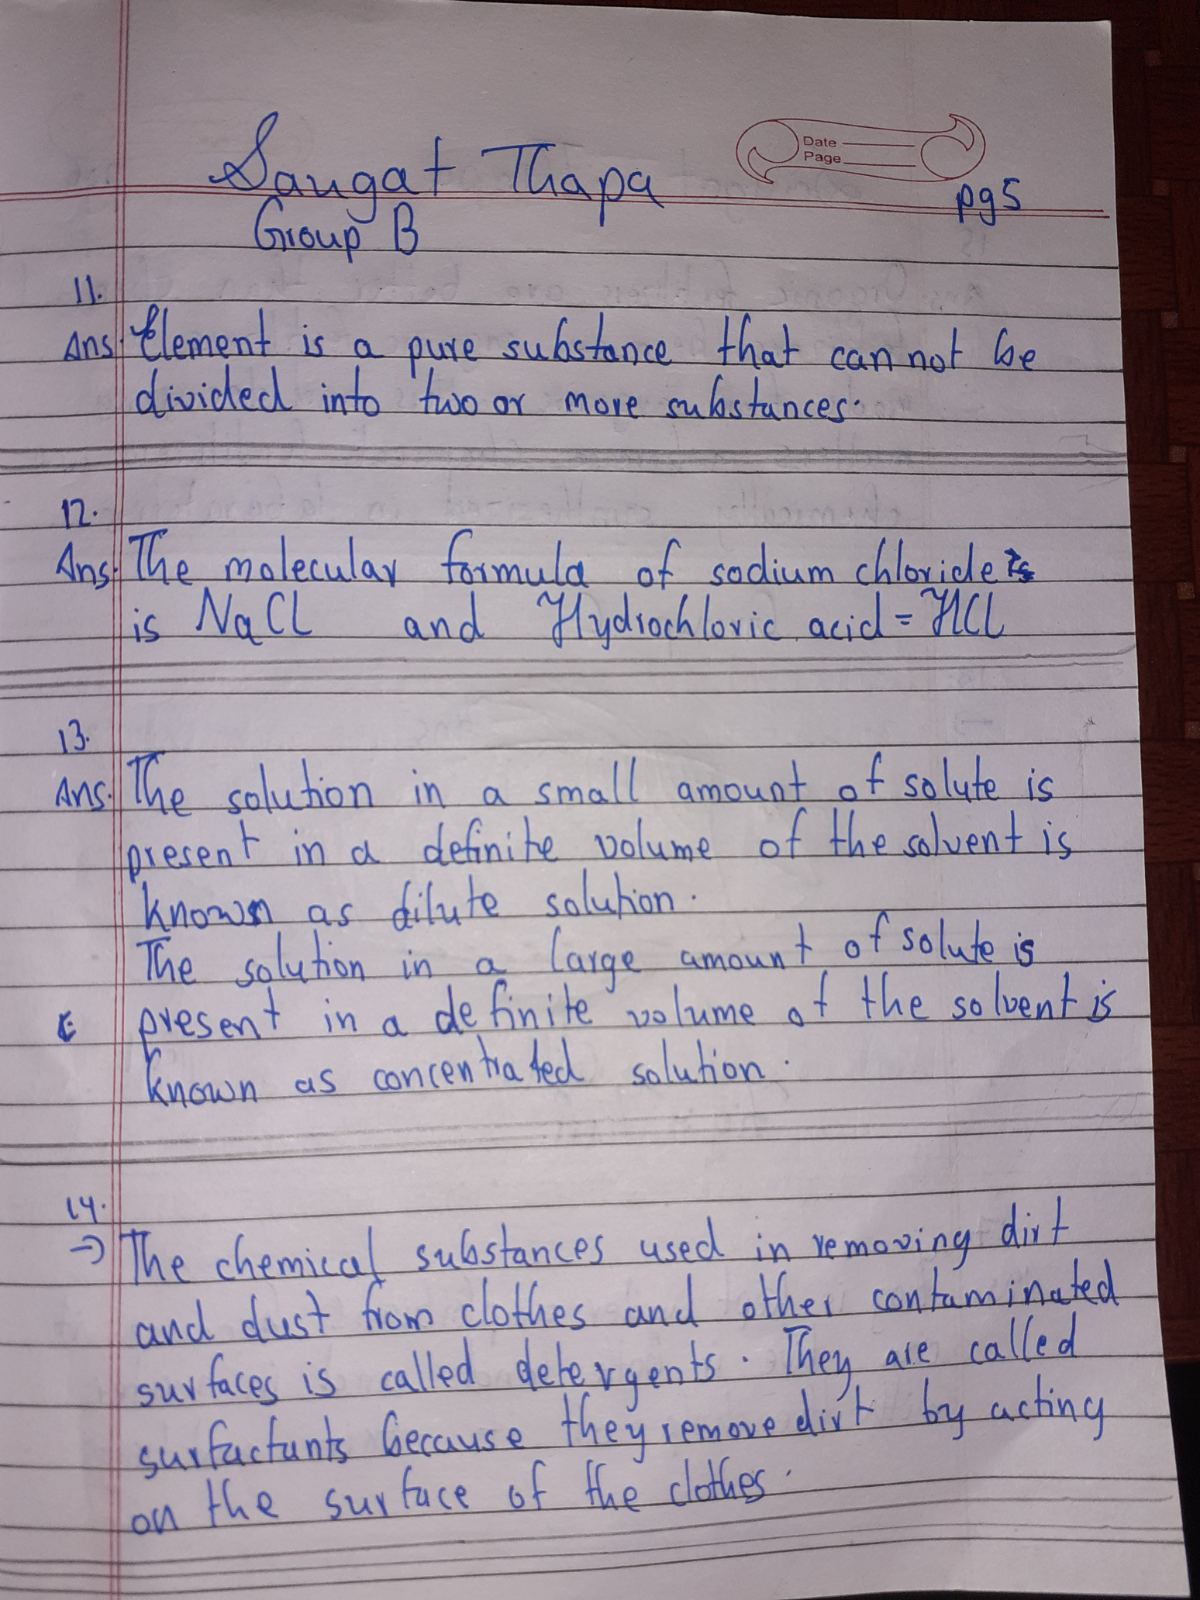 Date
Page
Saugat Thapa
pg5
Group B
11.
Ans: Element is a pure substance that can not be
divided into two or more substances.
12.
Ans: The molecular formula of sodium chloride is
is NaCl and Hydrochloric acid = HCl
13.
Ans: The solution in a small amount of solute is
present in a definite volume of the solvent is
known as dilute solution.
The solution in a large amount of solute is
present in a definite volume of the solvent is
known as concentrated solution.
14.
→ The chemical substances used in removing dirt
and dust from clothes and other contaminated
surfaces is called detergents. They are called
surfactants because they remove dirt by acting
on the surface of the clothes.